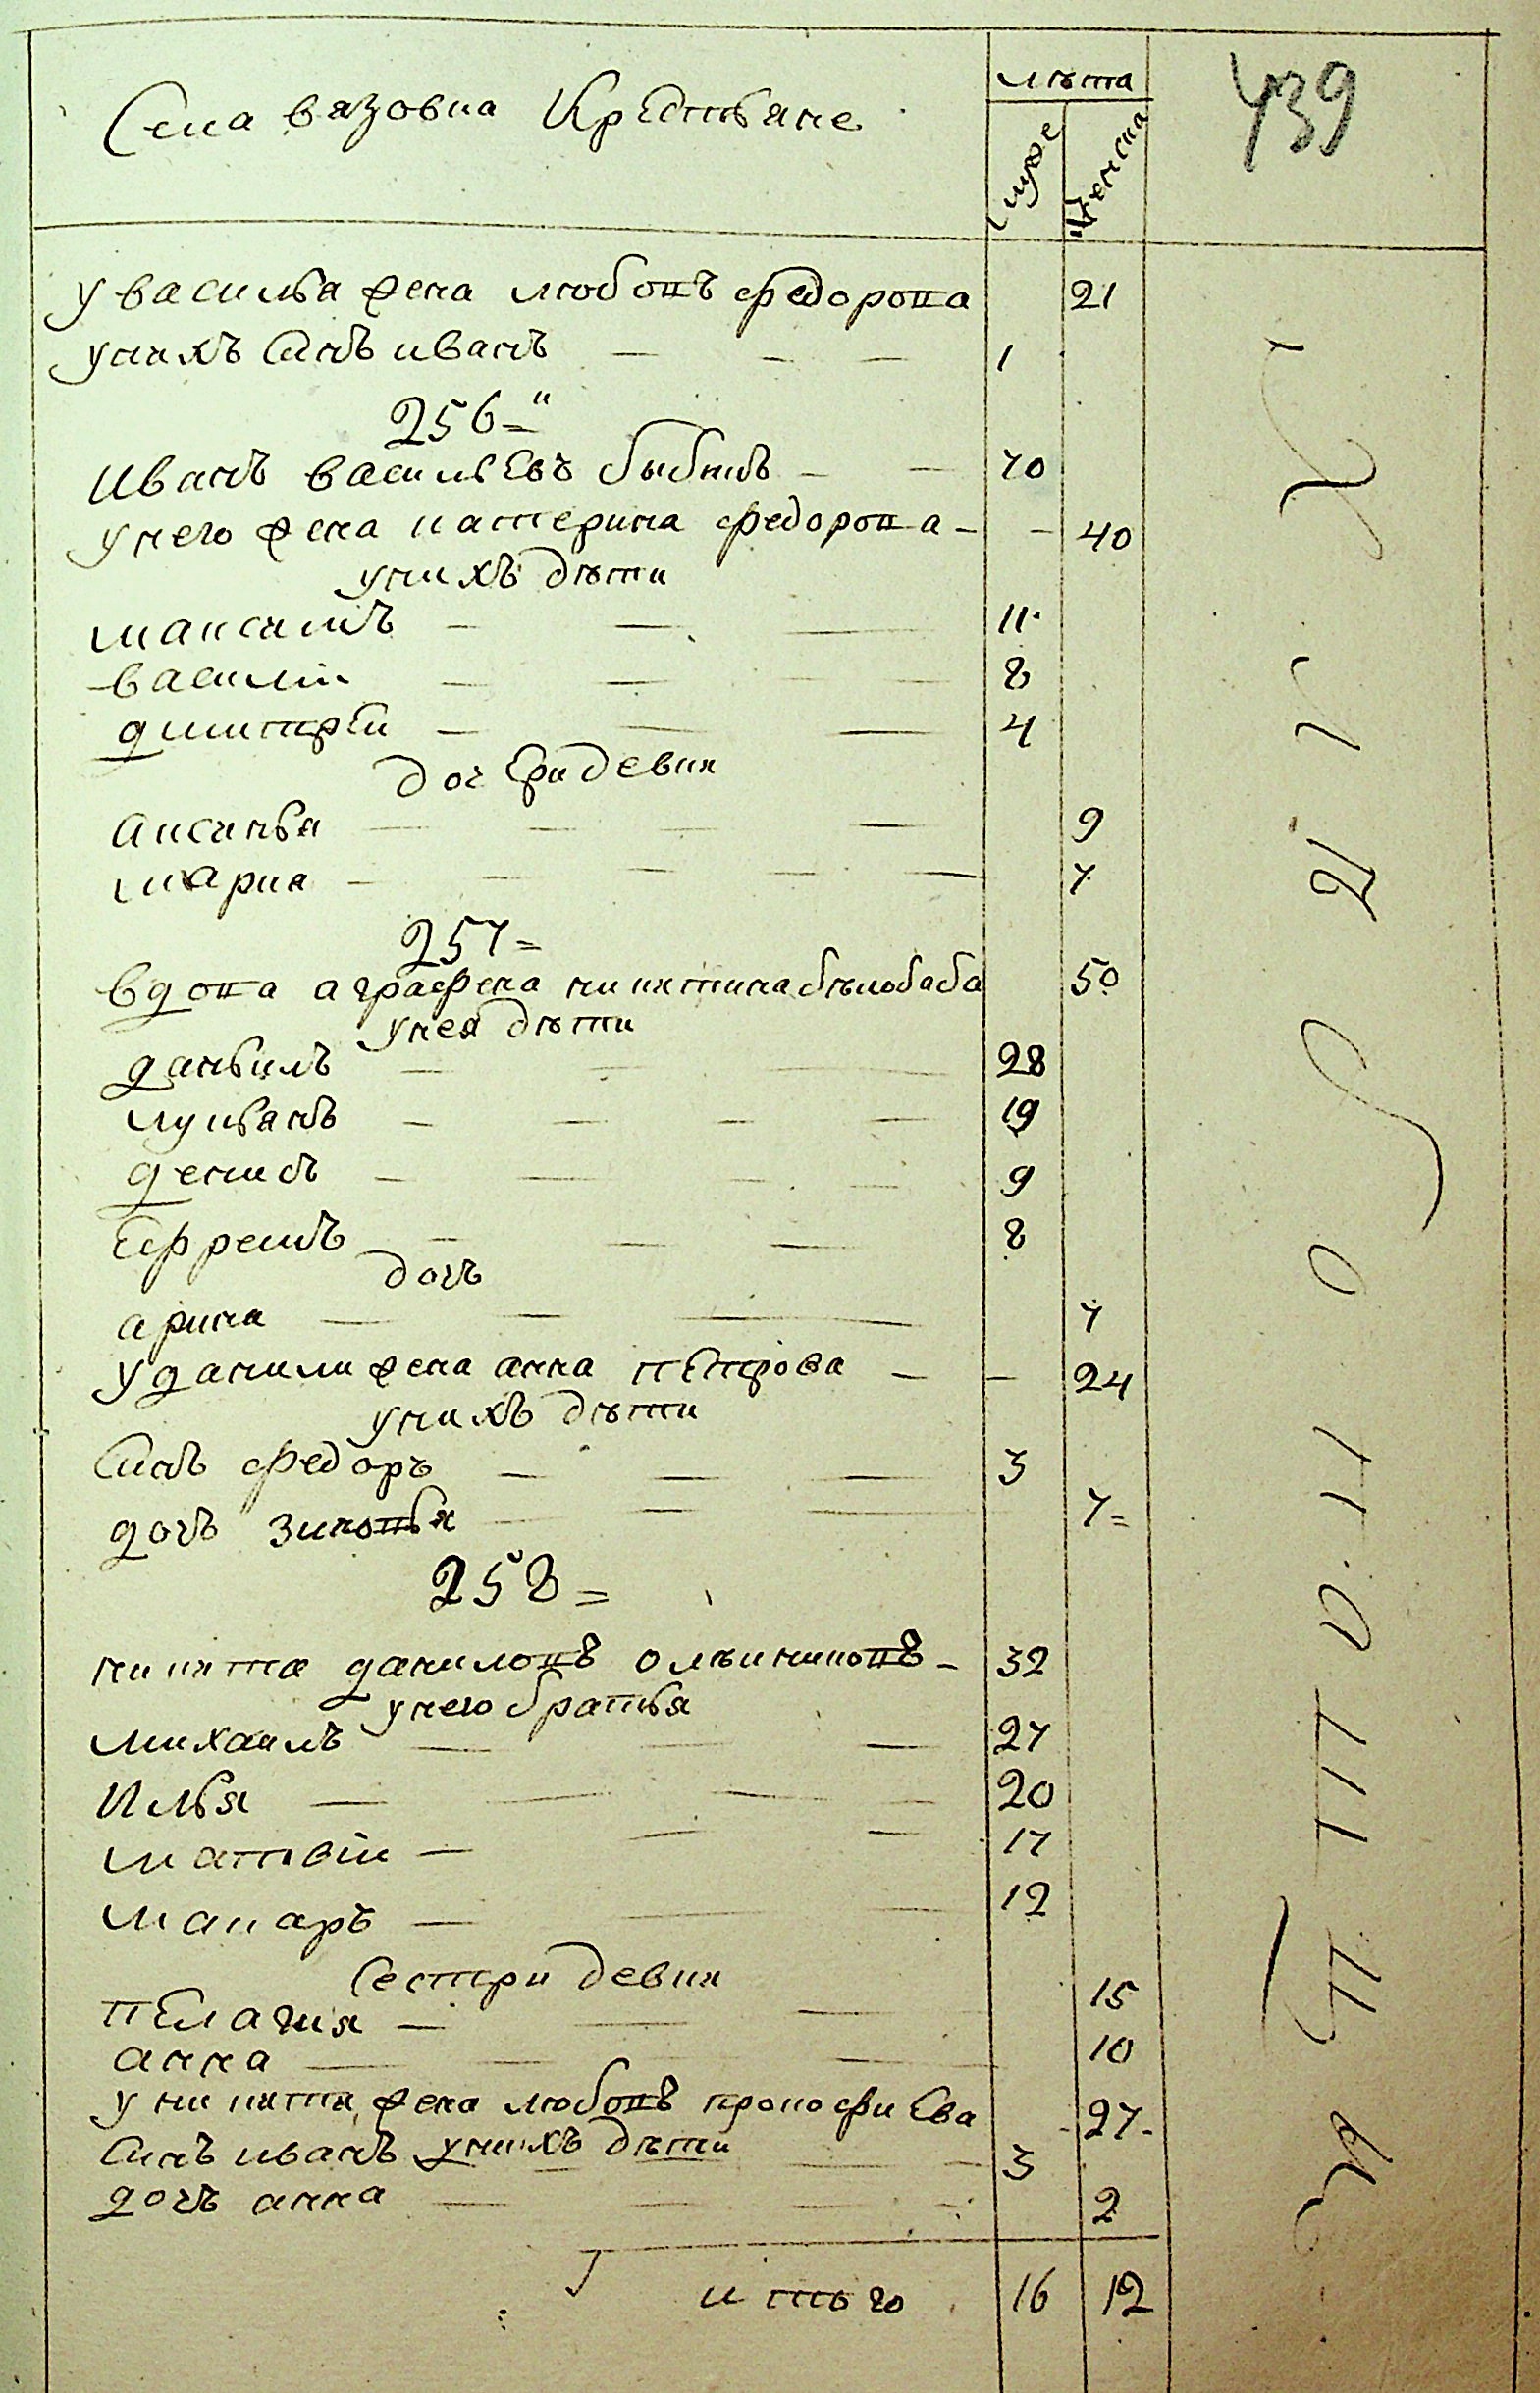 лѣта
439
Села вязовка Крестьяне
мужс
женска
у василья жена любовъ федорова 21
у нихъ синъ иванъ — — — 1
256="
Иванъ васильевъ — — 70
у него жена катерина федорова — — 40
у нихъ дѣти
максимъ — — — 11
василій — — — 8
дмитрей — — — 4
дочери девки
аксинья — — — — 9
мариа — — — — — 7
257=
вдова аграфена никитина бѣлобаба 50
у нея дѣти
данъилъ — — — 28
лукьанъ — — — — 19
денисъ — — — — 9
Ефремъ — — — 8
дочъ
арина — — — 7
у данили жена анна петрова — — 24
у нихъ дѣти
Синъ федоръ — — — 3
дочъ зиновья — — — 7=
258=
никита даниловъ олѣйниковъ — 32
у него братья
михаилъ — — — 27
Илья — — — — 20
матвій — — — 17
макаръ — — — 12
Сестри девки
пелагия — — — 15
анна — — — — 10
у никити жена любовъ прокофиева 27
у нихъ дѣти
Синъ иванъ — — — 3
дочъ анна — — — — 2
итого 16 12